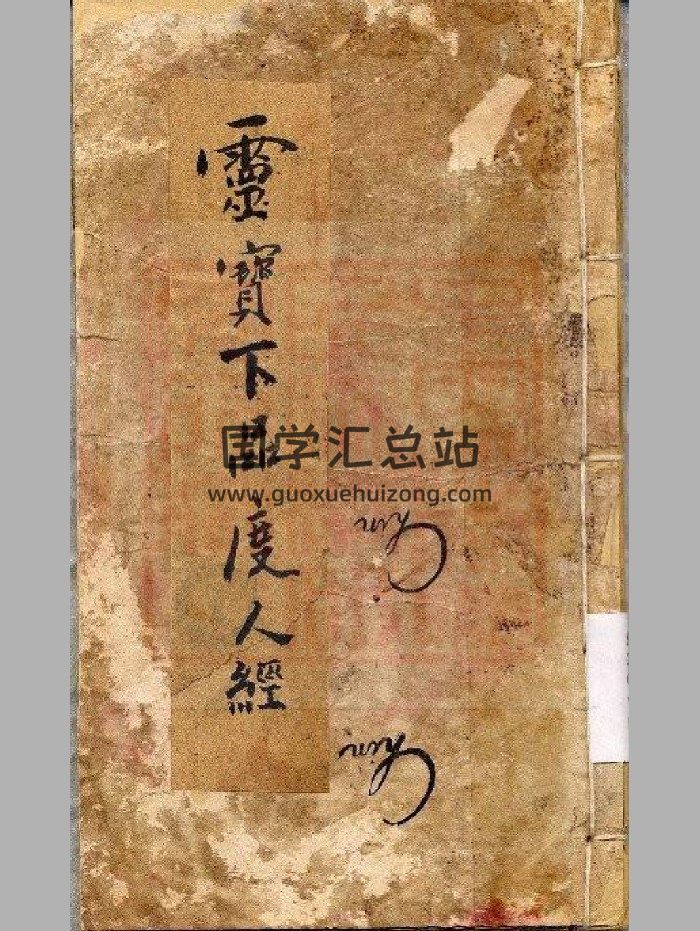 靈寶下度人經
国学汇总站
www.guoxuehuizong.com